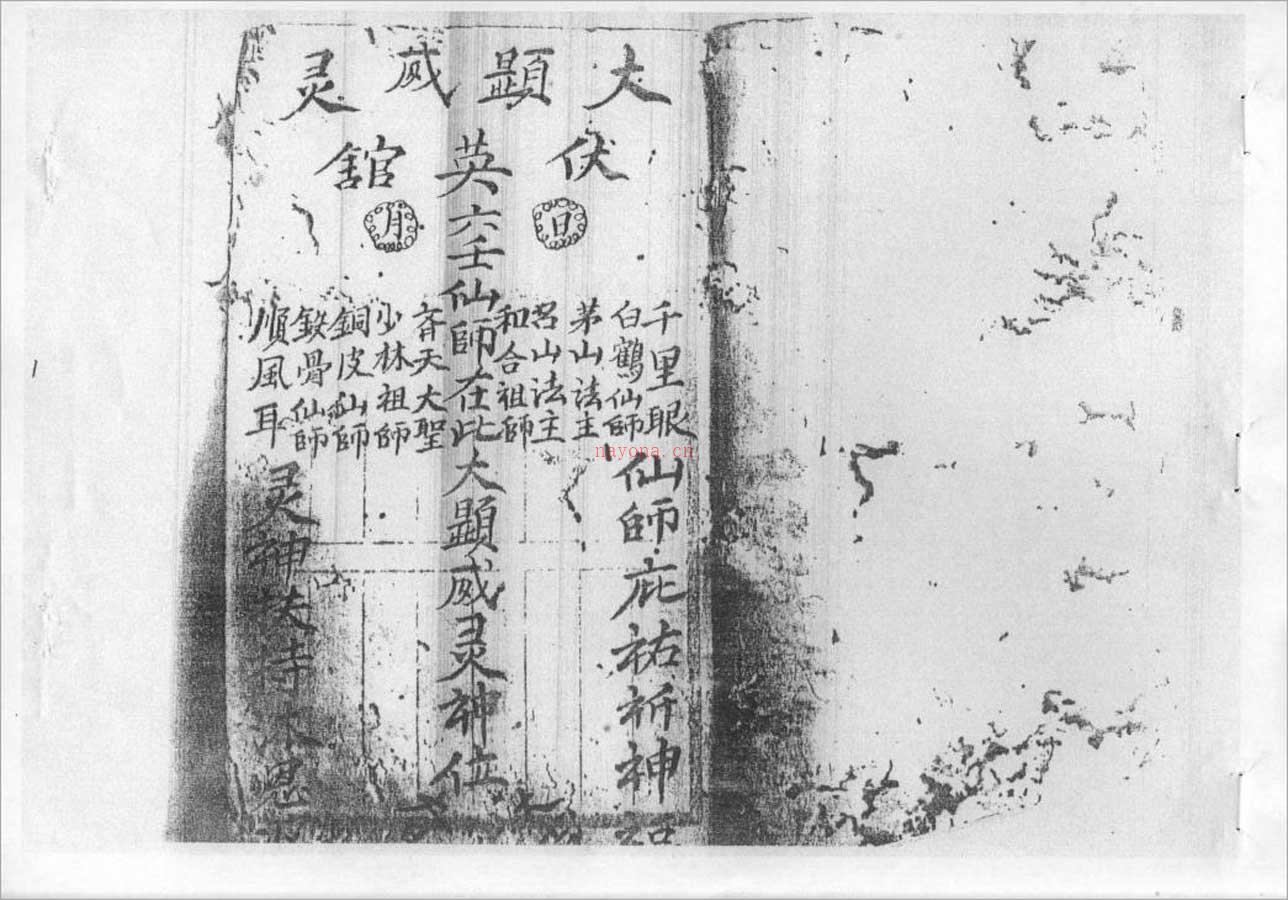 大顕威灵
伏英舘
日
月
千里眼
白鶴仙師
茅山法主
吕山法主
和合祖師
英六壬仙師在此大顕威灵神位
斉天大聖
少林祖師
銅皮仙師
鉄骨仙師
順風耳
仙師庇祐祈神
灵神扶持
恩
nayona.cn